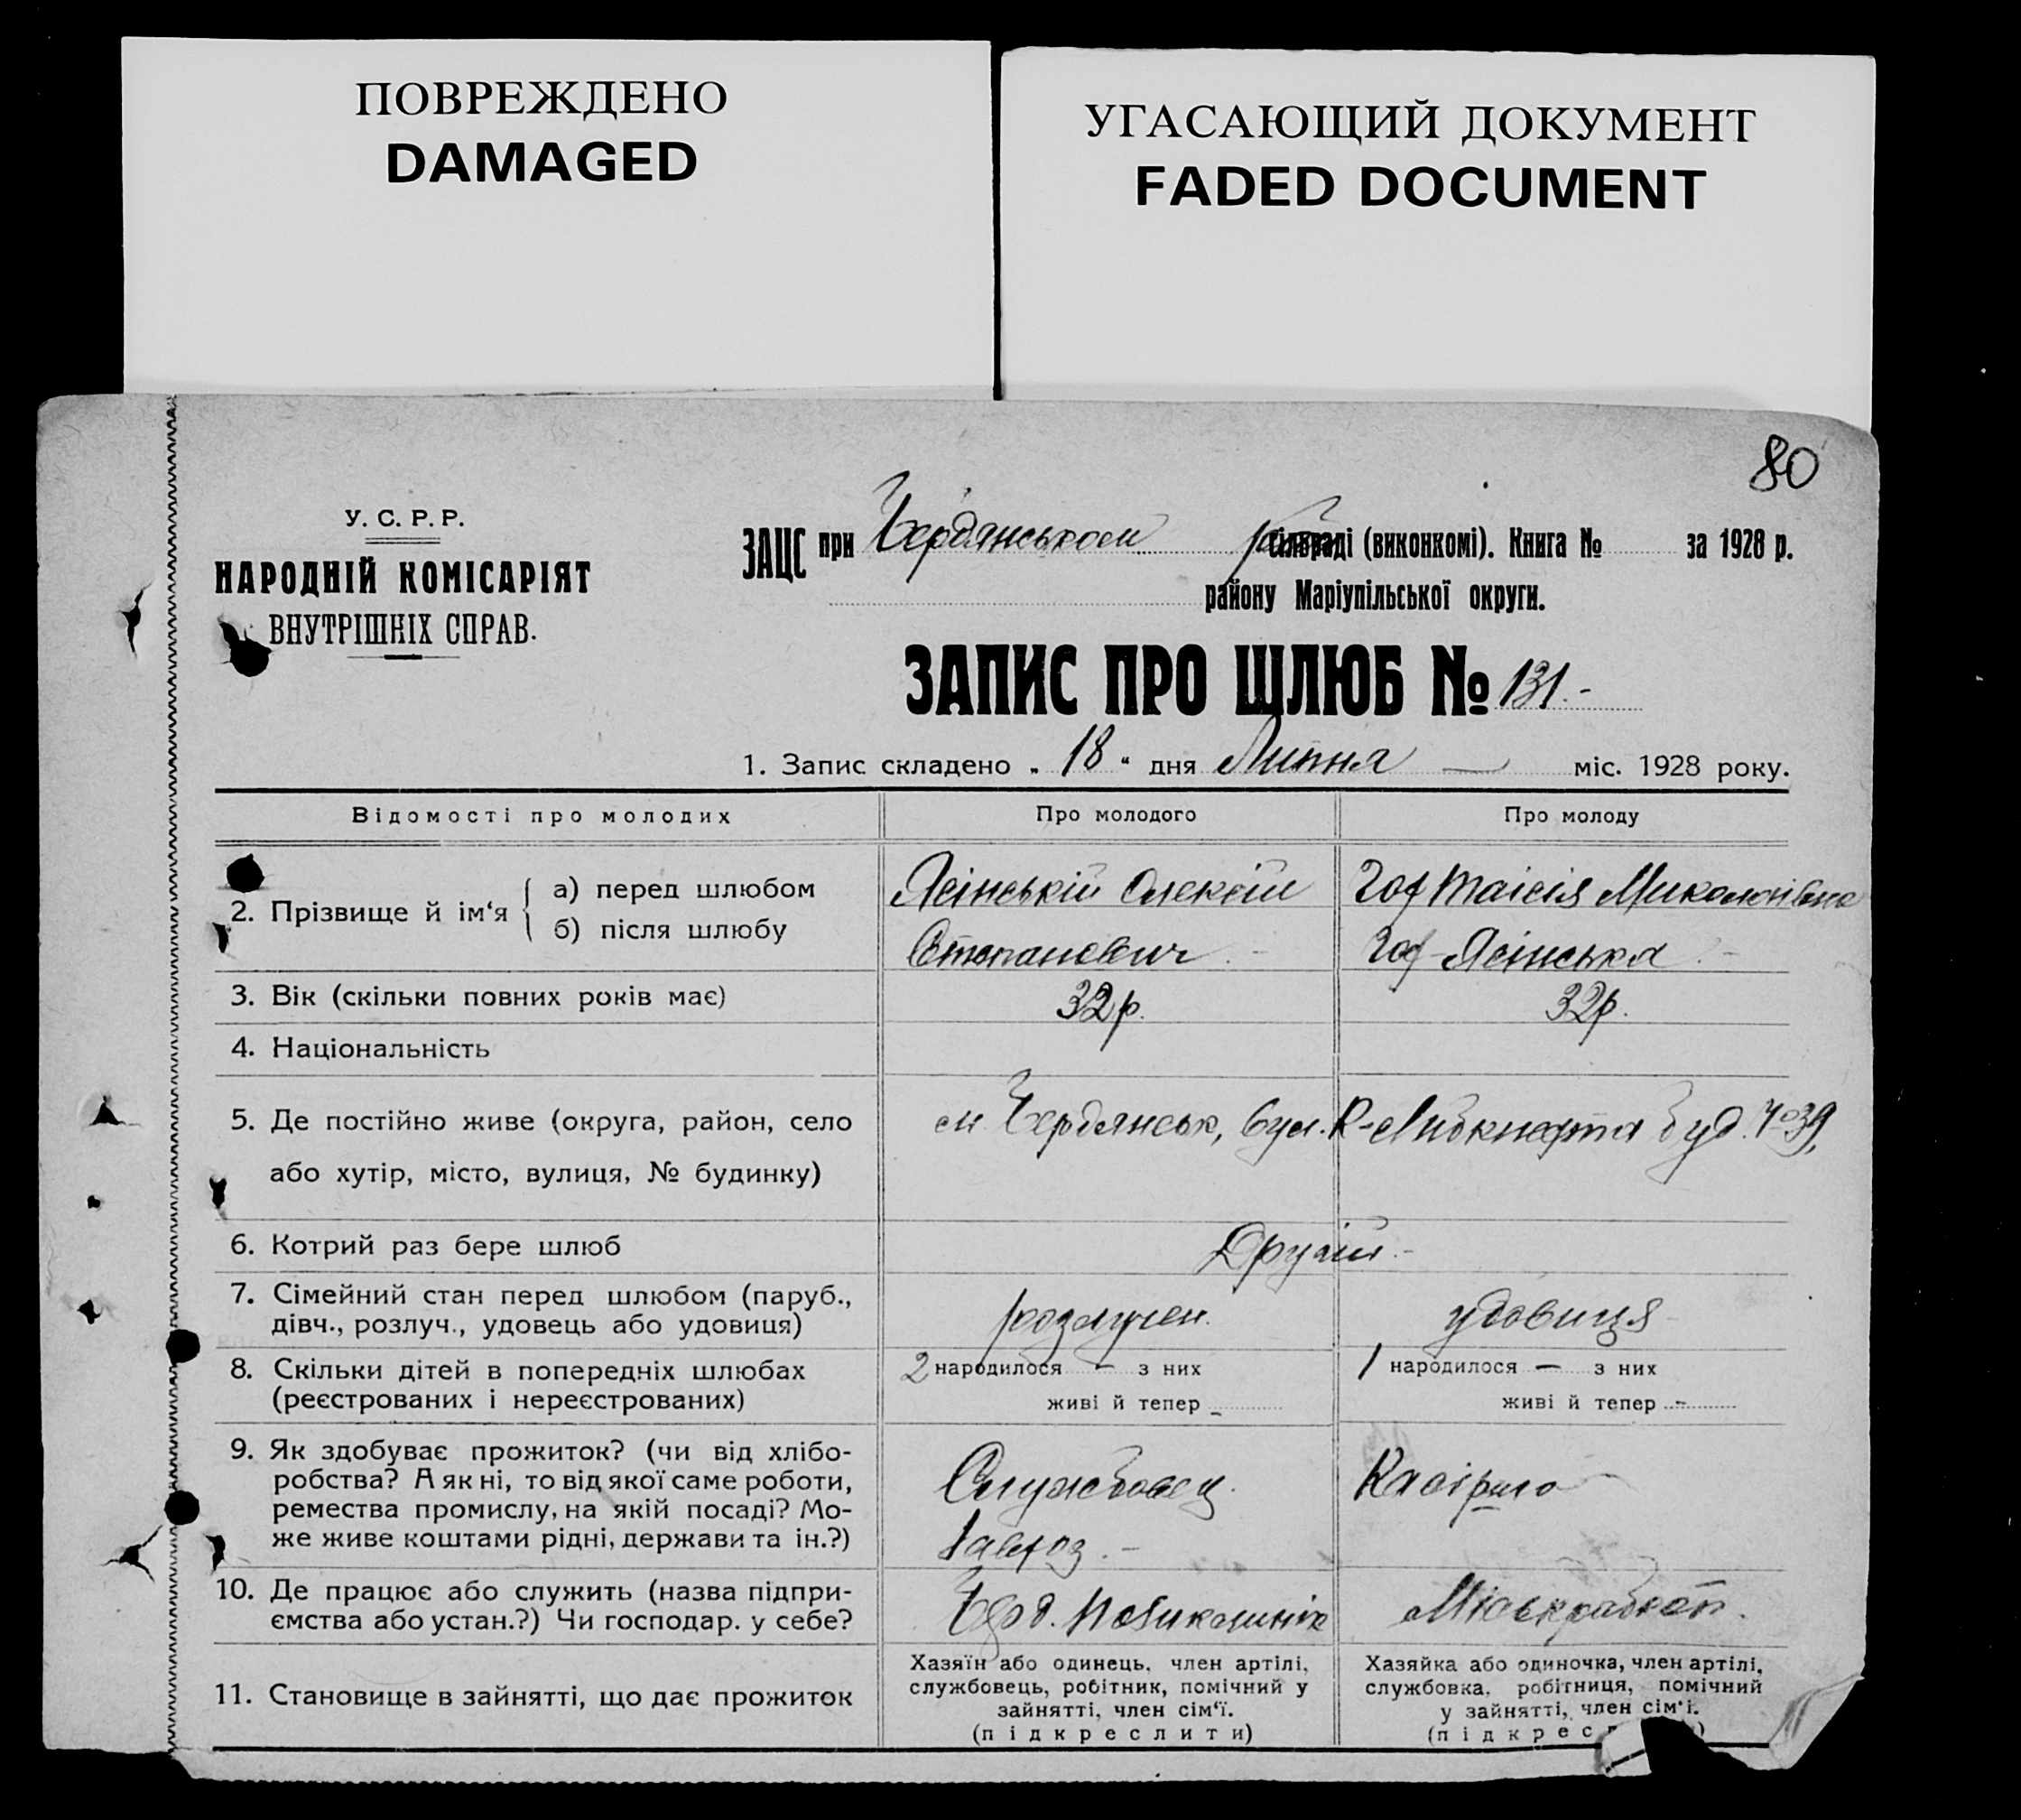 ПОВРЕЖДЕНО
DAMAGED
УГАСАЮЩИЙ ДОКУМЕНТ
FADED DOCUMENT
80
У. С. Р. Р.
НАРОДНІЙ КОМІСАРІЯТ
ВНУТРІШНІХ СПРАВ.
ЗАЦС при Бердянськом сільраді (виконкомі). Книга № за 1928 р.
району Маріупільської округи.
ЗАПИС ПРО ШЛЮБ № 131.-
1. Запис складено „ 18 “ дня Липня — міс. 1928 року.
Відомості про молодих
Про молодого
Про молоду
2. Прізвище й ім‘я
а) перед шлюбом
б) після шлюбу
Ясінській Олексій
Степанович.-
Гоф Таісія Миколаівна
Гоф-Ясінська.-
3. Вік (скільки повних років має)
32 р.
32 р.
4. Національність
5. Де постійно живе (округа, район, село
або хутір, місто, вулиця, № будинку)
м. Бердянськ, вул. К-Лібкнехта буд. №39,
6. Котрий раз бере шлюб
Другий.-
7. Сімейний стан перед шлюбом (паруб.,
дівч., розлуч., удовець або удовиця)
розлучен.
удовиця
8. Скільки дітей в попередніх шлюбах
(реєстрованих і нереєстрованих)
2 народилося — з них
живі й тепер -
1 народилося — з них
живі й тепер -
9. Як здобуває прожиток? (чи від хлібо-
робства? А як ні, то від якої саме роботи,
ремества промислу, на якій посаді? Мо-
же живе коштами рідні, держави та ін.?)
Службовец.
Завгоз.-
Касірша
10. Де працює або служить (назва підпри-
ємства або устан.?) Чи господар. у себе?
Берд.
Міськрабкоп.
11. Становище в зайнятті, що дає прожиток
Хазяїн або одинець, член артілі,
службовець, робітник, помічний у
зайнятті, член сім‘ї.
(підкреслити)
Хазяйка або одиночка, член артілі,
службовка, робітниця, помічний
у зайнятті, член сім‘ї.
(підкресл